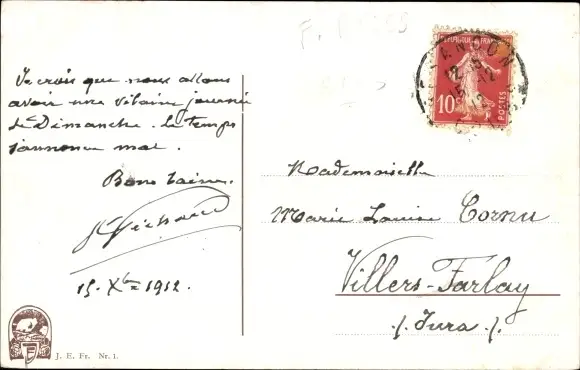 Je crois que nous allons
avoir une vilaine journée
de Dimanche. le temps
s'annonce mal.
Bons baisers.
15. Xbre 1912.
J. E. Fr. Nr. 1.
REPUBLIQUE FRANCAISE
10c
POSTES
Mademoiselle
Marie Louise Cornu
Villers-Farlay
(Jura).